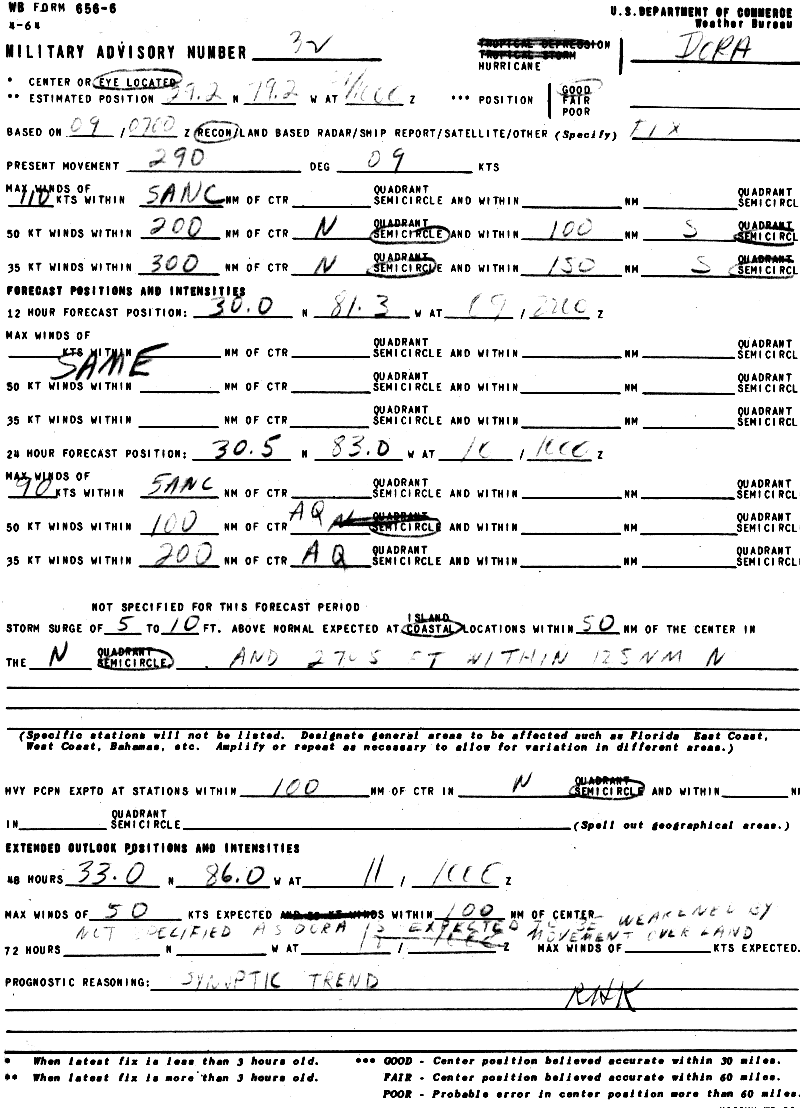 WB FORM 656-6
4-64
U.S. DEPARTMENT OF COMMERCE
Weather Bureau
MILITARY ADVISORY NUMBER 32 TROPICAL DEPRESSION TROPICAL STORM HURRICANE DORA
* CENTER OR EYE LOCATED
** ESTIMATED POSITION 29.2 N 79.2 W AT /1000 Z *** POSITION GOOD FAIR POOR
BASED ON 09 /0700 Z RECON/LAND BASED RADAR/SHIP REPORT/SATELLITE/OTHER (Specify) FIX
PRESENT MOVEMENT 290 DEG 09 KTS
MAX WINDS OF
110 KTS WITHIN SANC NM OF CTR QUADRANT SEMICIRCLE AND WITHIN NM QUADRANT SEMICIRCL
50 KT WINDS WITHIN 200 NM OF CTR N QUADRANT SEMICIRCLE AND WITHIN 100 NM S QUADRANT SEMICIRCL
35 KT WINDS WITHIN 300 NM OF CTR N QUADRANT SEMICIRCLE AND WITHIN 150 NM S QUADRANT SEMICIRCL
FORECAST POSITIONS AND INTENSITIES
12 HOUR FORECAST POSITION: 30.0 N 81.3 W AT 09 / 2200 Z
MAX WINDS OF
KTS WITHIN SAME NM OF CTR QUADRANT SEMICIRCLE AND WITHIN NM QUADRANT SEMICIRCL
50 KT WINDS WITHIN NM OF CTR QUADRANT SEMICIRCLE AND WITHIN NM QUADRANT SEMICIRCL
35 KT WINDS WITHIN NM OF CTR QUADRANT SEMICIRCLE AND WITHIN NM QUADRANT SEMICIRCL
24 HOUR FORECAST POSITION: 30.5 N 83.0 W AT 10 / 1000 Z
MAX WINDS OF
90 KTS WITHIN SANC NM OF CTR QUADRANT SEMICIRCLE AND WITHIN NM QUADRANT SEMICIRCL
50 KT WINDS WITHIN 100 NM OF CTR AQ N QUADRANT SEMICIRCLE AND WITHIN NM QUADRANT SEMICIRCL
35 KT WINDS WITHIN 200 NM OF CTR AQ QUADRANT SEMICIRCLE AND WITHIN NM QUADRANT SEMICIRCL
NOT SPECIFIED FOR THIS FORECAST PERIOD
STORM SURGE OF 5 TO 10 FT. ABOVE NORMAL EXPECTED AT ISLAND COASTAL LOCATIONS WITHIN 50 NM OF THE CENTER IN
THE N QUADRANT SEMICIRCLE. AND 2 TO 5 FT WITHIN 125 NM N
(Specific stations will not be listed. Designate general areas to be affected such as Florida East Coast,
West Coast, Bahamas, etc. Amplify or repeat as necessary to allow for variation in different areas.)
HVY PCPN EXPTD AT STATIONS WITHIN 100 NM OF CTR IN N QUADRANT SEMICIRCLE AND WITHIN NM
IN QUADRANT SEMICIRCLE (Spell out geographical areas.)
EXTENDED OUTLOOK POSITIONS AND INTENSITIES
48 HOURS 33.0 N 86.0 W AT 11 / 1000 Z
MAX WINDS OF 50 KTS EXPECTED AND 50 KT WINDS WITHIN 100 NM OF CENTER
NOT SPECIFIED AS DORA IS EXPECTED TO BE WEAKENED BY MOVEMENT OVER LAND
72 HOURS N W AT 12 / 1000 Z MAX WINDS OF KTS EXPECTED.
PROGNOSTIC REASONING: SYNOPTIC TREND
RHK
* When latest fix is less than 3 hours old.
** When latest fix is more than 3 hours old.
*** GOOD - Center position believed accurate within 30 miles.
FAIR - Center position believed accurate within 60 miles.
POOR - Probable error in center position more than 60 miles.